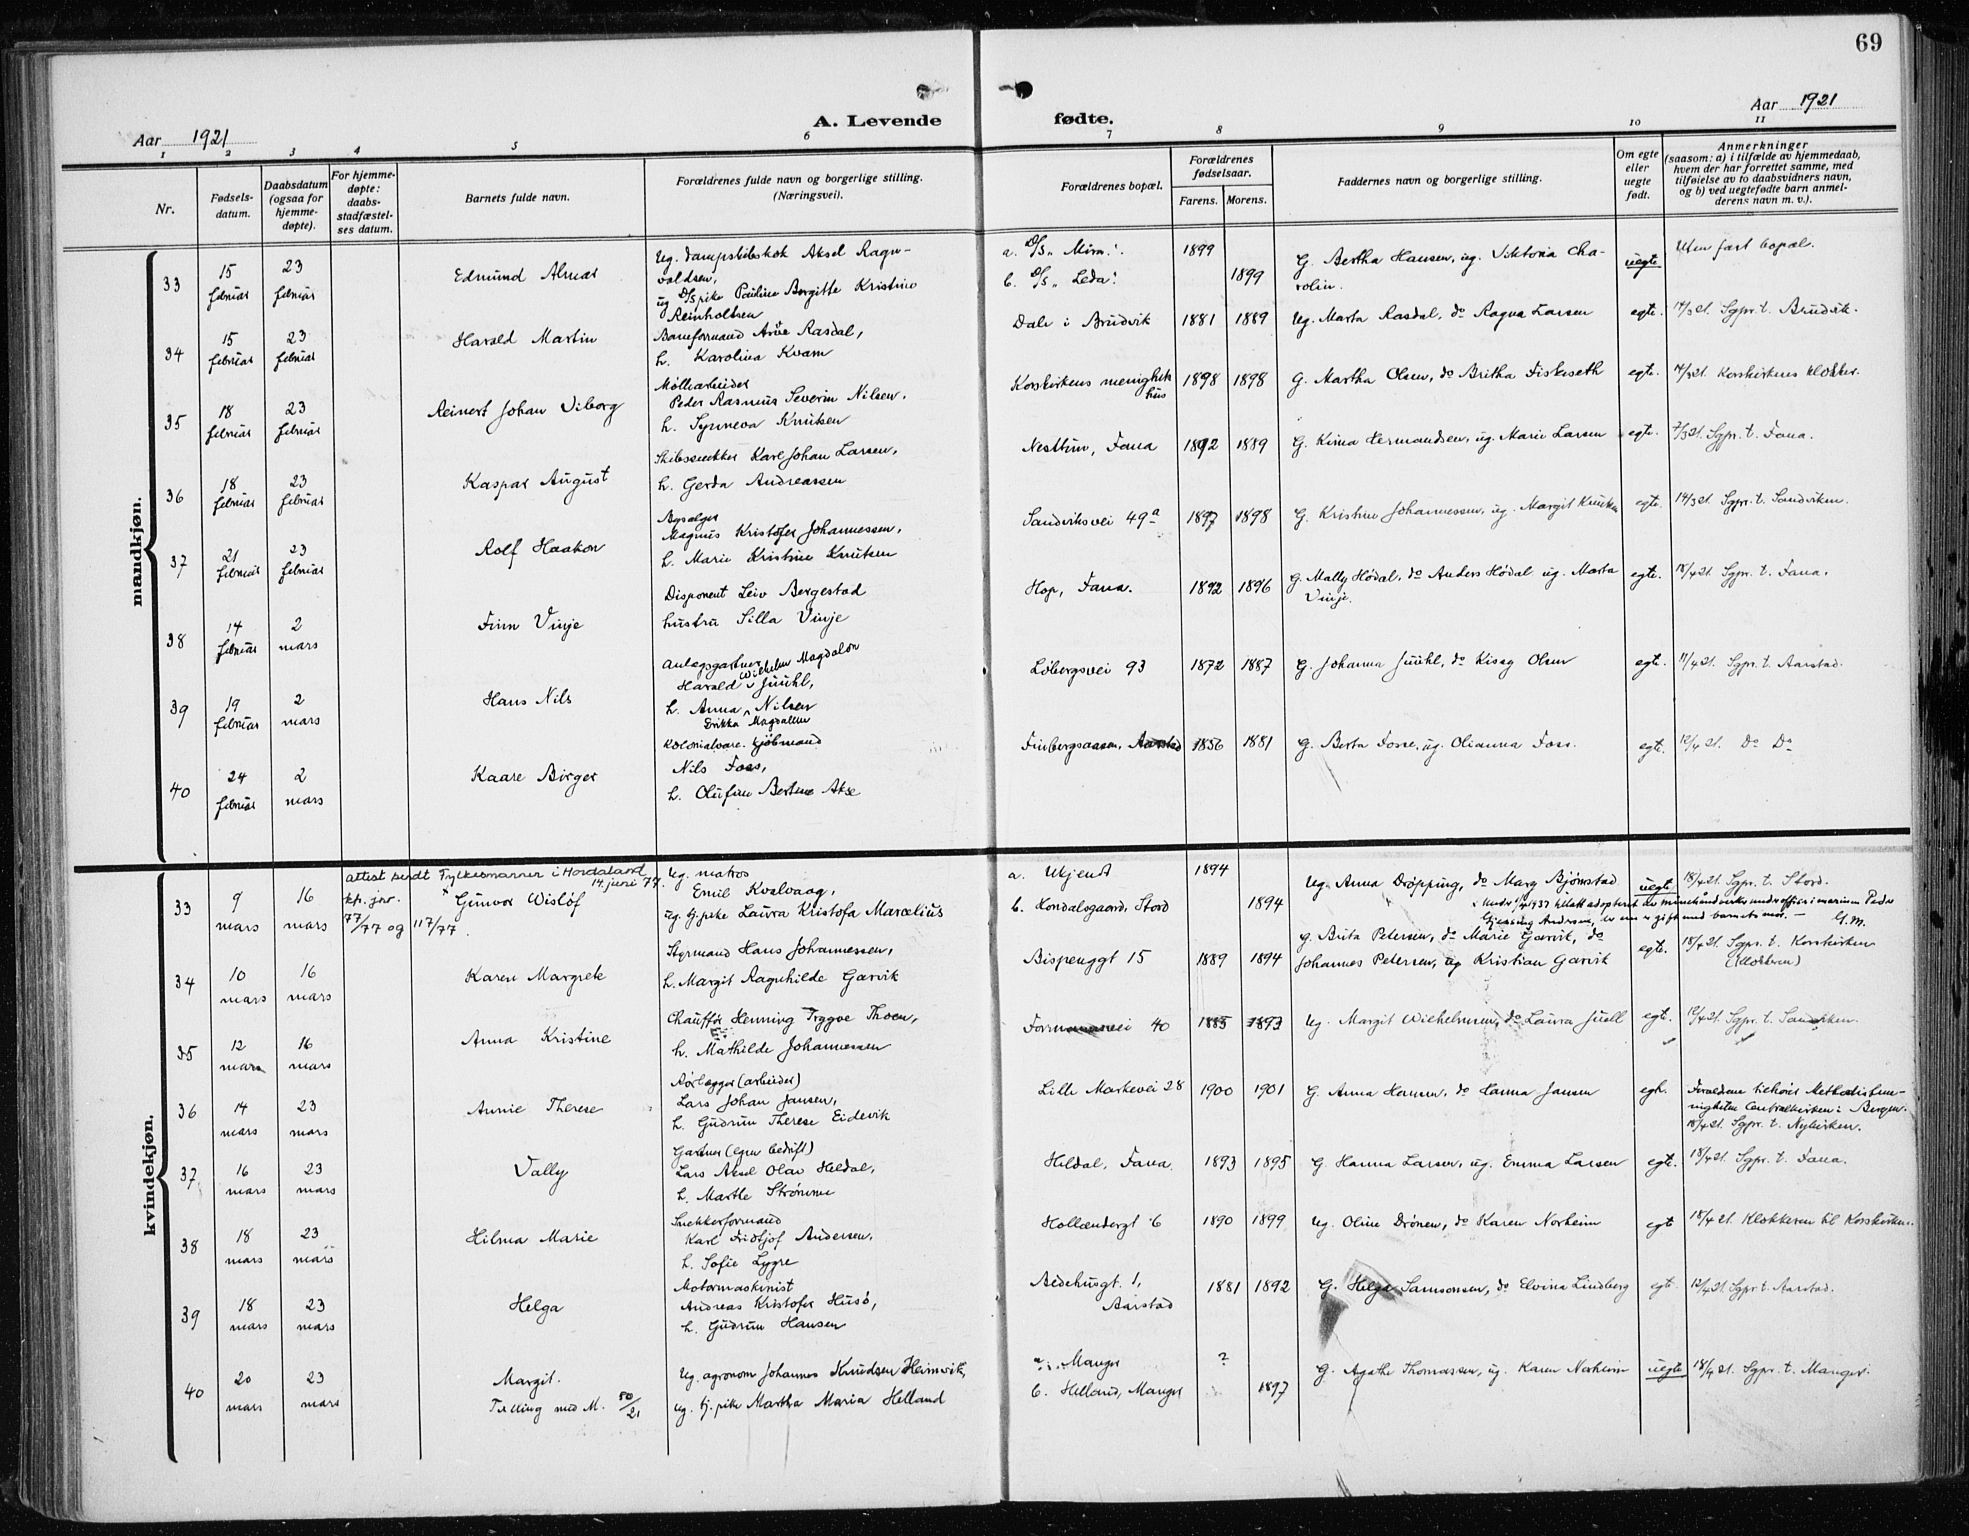 69
Aar 1921
A. Levende fødte.
Aar 1921
1 2 3 4 5 6 7 8 9 10 11
Nr.
Fødsels-
datum.
Daabsdatum
(ogsaa for
hjemme-
døpte).
For hjemme-
døpte:
daabs-
stadfæstel-
ses datum.
Barnets fulde navn.
Forældrenes fulde navn og borgerlige stilling.
(Næringsvei).
Forældrenes bopæl.
Forældrenes
fødselsaar.
Farens. Morens.
Faddernes navn og borgerlige stilling.
Om egte
eller
uegte
født.
Anmerkninger
(saasom: a) i tilfælde av hjemmedaab,
hvem der har forrettet samme, med
tilføielse av to daabsvidners navn,
og b) ved uegtefødte barn anmel-
derens navn m. v.).
mandkjøn.
33
15 februar
23 februar
Edmund Almar
Ug. dampskibskok Aksel Ragn-
valdsen,
ug D/S pike Pauline Bergitte Kristine
Reinholtsen
a. D/S „Mira".
b. D/S „Leda".
1899
1899
G. Bertha Hansen, ug. Viktoria Cha-
rolin.
uegte
Uten fast bopæl.
34
15 februar
23 februar
Harald Martin
Baneformand Arne Rasdal,
h. Karolina Kvam
Dale i Brudvik
1881 1889
Ug. Marta Rasdal, do Ragna Larsen
egte.
14/3 21. Sgpr. t. Brudvik.
35
18 februar
23 februar
Reinert Johan Viborg
Møllearbeider
Peder Rasmus Severin Nilsen,
h. Synneva Knutsen
Korskirkens menighets
hus
1898 1898
G. Martha Olsen, do Britha Fiskeseth
egte.
Korskirkens klokker.
36
18 februar
23 februar
Kaspar August
Skibssnekker Karl Johan Larsen,
h. Gerda Andreassen
Nesttun, Fana
1892 1889
G. Kina Hermandsen, ug. Marie Larsen
egte.
7/3 21. Sgpr. t. Fana.
37
21 februar
23 februar
Rolf Haakon
Magnus Kristofer Johannessen,
h. Marie Kristine Knutsen
Sandviksvei 49a
1897 1898
G. Kristine Johannessen, ug. Margit Knutsen
egte.
14/3 21. Sgpr. t. Sandviken.
38
14 februar
2 mars
Finn Vinje
Disponent Leiv Bergestad
hustru Silla Vinje
Hop, Fana.
1892 1896
G. Mally Hødal, do Anders Hødal ug. Marta
Vinje.
egte.
18/4 21. Sgpr. t. Fana.
39
19 februar
2 mars
Hans Nils
Anlægsgartner
Harald Wilhelm Magdalon Juuhl,
h. Anna Nilsen
Drikka Magdalene
Løbergsvei 93
1872 1887
G. Johanna Juuhl, do Kisag Olsen
egte.
11/4 21. Sgpr. t. Aarstad.
40
24 februar
2 mars
Kaare Birger
Kolonialvare. kjøbmand
Nils Foss,
h. Olufine Bertine Akse
Finbergsaasen, Aarstad
1856 1881
G. Berta Fosse, ug. Olianna Foss.
egte.
12/4 21. Do Do
kvindekjøn.
attest sendt Fylkesmannen i Hordaland
14. juni 77.
kp. jnr.
77/77 og 117/77.
33
9 mars
16 mars
x Gunvor Wisløf
Ug. matros
Emil Kvalvaag,
ug. tj. pike Laura Kristofa Marcelius
a. Ukjendt
b. Hondalsgaard, Stord
1894
1894
Ug. Anna Drøpping, do Marg Bjørnstad
uegte
18/4 21. Sgpr. t. Stord.
x Under 1937 blitt adoptert av minehåndverks underoffiser i marinen Peder
Gjensing Andersen, er gift med barnets mor. — G.M.
34
10 mars
16 mars
Karen Margrete
Styrmand Hans Johannessen,
h. Margit Ragnhilde Garvik
Bispenggt 15
1889 1894
g. Brita Petersen, do Marie Garvik, do
Johannes Petersen, ug Kristian Garvik
egte.
18/4 21. Sgpr. t. Korskirken
(klokkeren)
35
12 mars
16 mars
Anna Kristine
Chauffør Henning Tryggve Thoen,
h. Mathilde Johannessen
Formannsvei 40
1885 1893
Ug. Margit Wilhelmsen, do Laura Juell
egte.
12/4 21. Sgpr. t. Sandviken.
36
14 mars
23 mars
Annie Therese
Rørlægger (arbeider)
Lars Johan Jansen,
h. Gudrun Therese Eidevik
Lille Markevei 28
1900 1901
G. Anna Hansen, do Hanna Jansen
egte.
Forældrene tilhører Methodistme-
nigheten Centralkirken i Bergen.
18/4 21. Sgpr. t. Nykirken.
37
16 mars
23 mars
Vally
Gartner (egen bedrift)
Lars Aksel Olav Heldal,
h. Marthe Strømme
Heldal, Fana.
1893 1895
G. Hanna Larsen, ug. Emma Larsen
egte.
18/4 21. Sgpr. t. Fana.
38
18 mars
23 mars
Hilma Marie
Snekkerformand
Karl Fridtjof Andersen,
h. Sofie Lygre
Hollændergt 6
1890 1899
Ug. Oline Drønen, do Karen Norheim
egt
18/4 21. Klokkeren til Korskirken.
39
18 mars
23 mars
Helga
Motormaskinist
Andreas Kristofer Husø,
h. Gudrun Hansen
Bedehusgt. 1,
Aarstad
1881 1892
G. Helga Samsonsen, do Elvina Lindberg
egt.
12/4 21. Sgpr. t. Aarstad.
40
20 mars
23 mars
Margit.
Tvilling med M. 50/21
Ug. agronom Johannes Knudsen Heimvik,
ug. tj. pike Martha Maria Helland
a. Manger
b. Helland, Manger
?
1897
G. Agathe Thomassen, ug. Karen Norheim
uegte
18/4 21. Sgpr. t. Manger.